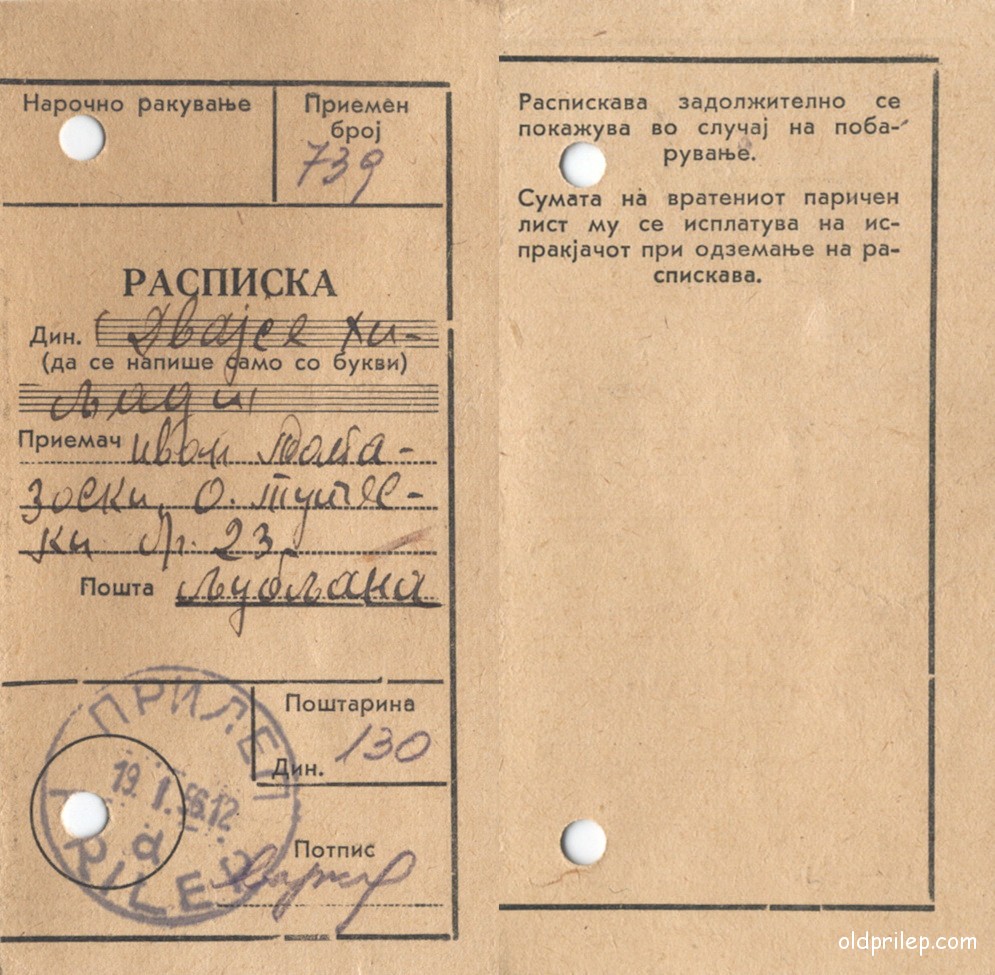 Нарочно ракување
Приемен
број
739
РАСПИСКА
Дин. Двајсе хи-
(да се напише само со букви)
љади
Приемач Иван
зоски, О.
ки бр. 23
Пошта Љубљана
ПРИЛЕП
19. I. 56.12
а
PRILEP
Поштарина
130
Дин.
Потпис
Распискава задолжително се
покажува во случај на поба-
рување.
Сумата на вратениот паричен
лист му се исплатува на ис-
пракјачот при одземање на ра-
спискава.
oldprilep.com